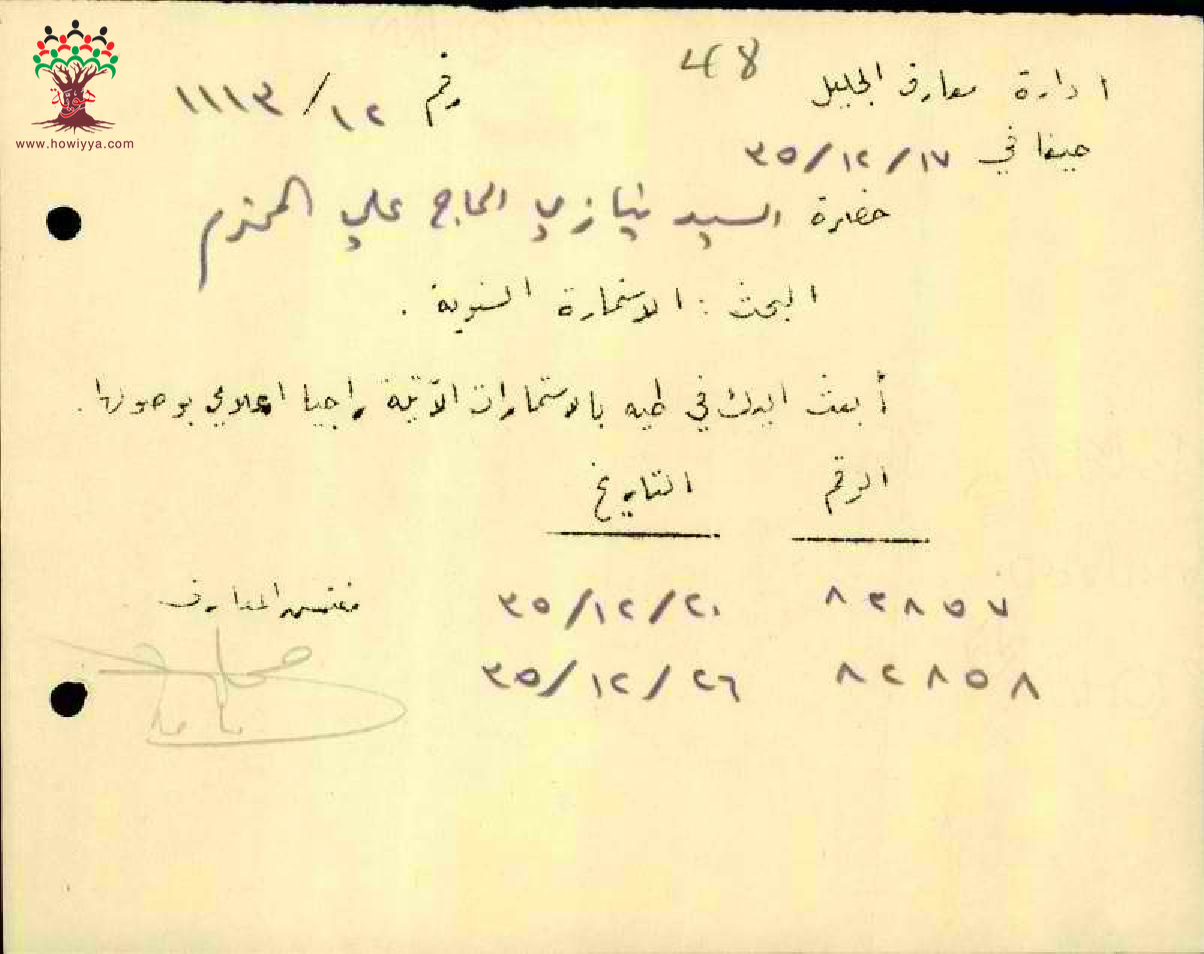 48
ادارة معارف الجليل
رقم ١٢/١١١٣
حيفا في ١٧/١٢/٣٥
حضرة السيد نيازي الحاج علي المحترم
البحث : الاستمارة السنوية .
أبعث اليك في طيه بالاستمارات الآتية راجيا اعلامي بوصولها .
الرقم التاريخ
٨٣٨٥٧ ٢٠/١٢/٣٥
٨٢٨٥٨ ٢٦/١٢/٣٥
مفتش المعارف
هوية
www.howiyya.com